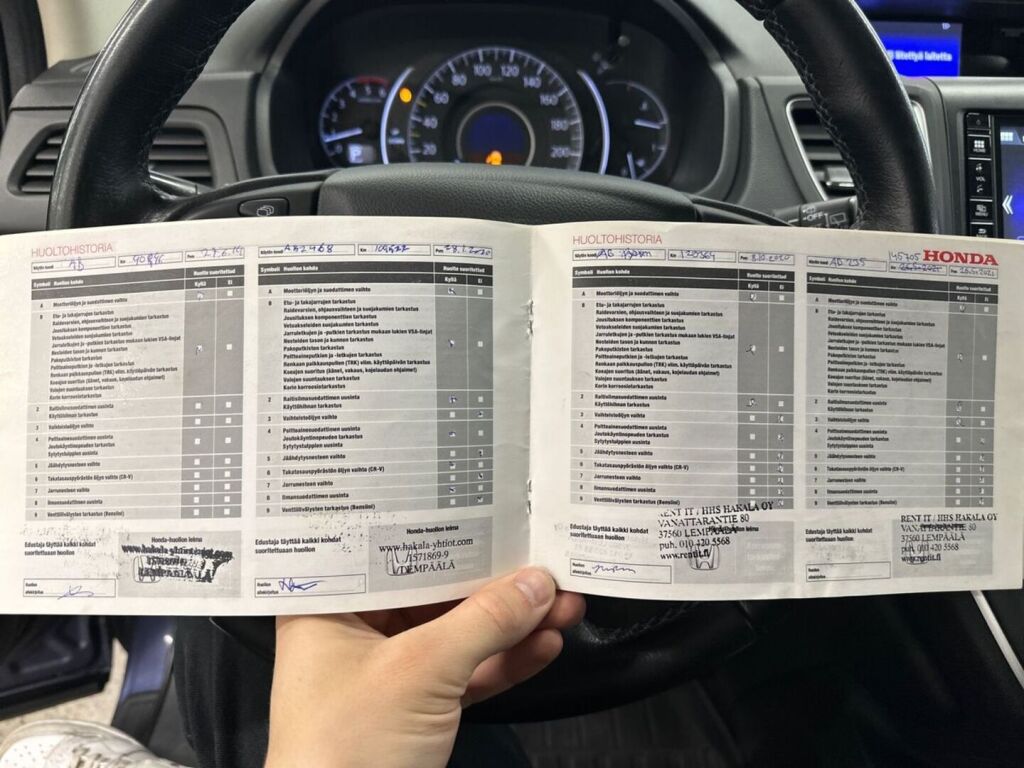 100 120
80 140
60 160
40 180
20 200
P
litettyä laitetta
OFF
HOME
VOL
MENU
HUOLTOHISTORIA
AB
Km
Pvm
Symboli Huollon kohde
Huolto suoritettu
Kyllä Ei
A Moottoriöljyn ja suodattimen vaihto
B Etu- ja takajarrujen tarkastus
Raidevarsien, ohjausvaihteen ja suojakumien tarkastus
Jousituksen komponenttien tarkastus
Vetoakseleiden suojakumien tarkastus
Jarruletkujen ja -putkien tarkastus mukaan lukien VSA-linjat
Nesteiden tason ja kunnon tarkastus
Pakoputkiston tarkastus
Polttoaineputkien ja -letkujen tarkastus
Renkaan paikkauspullon (TRK) viim. käyttöpäivän tarkastus
Koeajon suoritus (äänet, vakaus, kojelaudan ohjaimet)
Valojen suuntauksen tarkastus
Korin korroosiotarkastus
2 Raitisilmasuodattimen uusinta
Käyttöhihnan tarkastus
3 Vaihteistoöljyn vaihto
4 Polttoainesuodattimen uusinta
Joutokäyntinopeuden tarkastus
Sytytystulppien uusinta
5 Jäähdytysnesteen vaihto
6 Takatasauspyörästön öljyn vaihto (CR-V)
7 Jarrunesteen vaihto
8 Ilmansuodattimen uusinta
9 Venttiilivälysten tarkastus (Bensiini)
Edustaja täyttää kaikki kohdat
suoritettuaan huollon
Honda-huollon leima
www.hakala-yhtiot.com
LEMPÄÄLÄ
Huollon
allekirjoitus
Näytön koodi AB2468 Km Pvm 28.1.2020
Symboli Huollon kohde
Huolto suoritettu
Kyllä Ei
A Moottoriöljyn ja suodattimen vaihto
B Etu- ja takajarrujen tarkastus
Raidevarsien, ohjausvaihteen ja suojakumien tarkastus
Jousituksen komponenttien tarkastus
Vetoakseleiden suojakumien tarkastus
Jarruletkujen ja -putkien tarkastus mukaan lukien VSA-linjat
Nesteiden tason ja kunnon tarkastus
Pakoputkiston tarkastus
Polttoaineputkien ja -letkujen tarkastus
Renkaan paikkauspullon (TRK) viim. käyttöpäivän tarkastus
Koeajon suoritus (äänet, vakaus, kojelaudan ohjaimet)
Valojen suuntauksen tarkastus
Korin korroosiotarkastus
2 Raitisilmasuodattimen uusinta
Käyttöhihnan tarkastus
3 Vaihteistoöljyn vaihto
4 Polttoainesuodattimen uusinta
Joutokäyntinopeuden tarkastus
Sytytystulppien uusinta
5 Jäähdytysnesteen vaihto
6 Takatasauspyörästön öljyn vaihto (CR-V)
7 Jarrunesteen vaihto
8 Ilmansuodattimen uusinta
9 Venttiilivälysten tarkastus (Bensiini)
Edustaja täyttää kaikki kohdat
suoritettuaan huollon
Honda-huollon leima
www.hakala-yhtiot.com
1571869-9
LEMPÄÄLÄ
Huollon
allekirjoitus
HUOLTOHISTORIA
Näytön koodi Km 120564 Pvm 8.10.2020
Symboli Huollon kohde
Huolto suoritettu
Kyllä Ei
A Moottoriöljyn ja suodattimen vaihto
B Etu- ja takajarrujen tarkastus
Raidevarsien, ohjausvaihteen ja suojakumien tarkastus
Jousituksen komponenttien tarkastus
Vetoakseleiden suojakumien tarkastus
Jarruletkujen ja -putkien tarkastus mukaan lukien VSA-linjat
Nesteiden tason ja kunnon tarkastus
Pakoputkiston tarkastus
Polttoaineputkien ja -letkujen tarkastus
Renkaan paikkauspullon (TRK) viim. käyttöpäivän tarkastus
Koeajon suoritus (äänet, vakaus, kojelaudan ohjaimet)
Valojen suuntauksen tarkastus
Korin korroosiotarkastus
2 Raitisilmasuodattimen uusinta
Käyttöhihnan tarkastus
3 Vaihteistoöljyn vaihto
4 Polttoainesuodattimen uusinta
Joutokäyntinopeuden tarkastus
Sytytystulppien uusinta
5 Jäähdytysnesteen vaihto
6 Takatasauspyörästön öljyn vaihto (CR-V)
7 Jarrunesteen vaihto
8 Ilmansuodattimen uusinta
9 Venttiilivälysten tarkastus (Bensiini)
Edustaja täyttää kaikki kohdat
suoritettuaan huollon
RENT IT / HHS HAKALA OY
VANATTARANTIE 80
37560 LEMPÄÄLÄ
puh. 010 420 5568
www.rentit.fi
Huollon
allekirjoitus
HONDA
Näytön koodi AB 235 145705 Pvm 26.5.2021
Symboli Huollon kohde
Huolto suoritettu
Kyllä Ei
A Moottoriöljyn ja suodattimen vaihto
B Etu- ja takajarrujen tarkastus
Raidevarsien, ohjausvaihteen ja suojakumien tarkastus
Jousituksen komponenttien tarkastus
Vetoakseleiden suojakumien tarkastus
Jarruletkujen ja -putkien tarkastus mukaan lukien VSA-linjat
Nesteiden tason ja kunnon tarkastus
Pakoputkiston tarkastus
Polttoaineputkien ja -letkujen tarkastus
Renkaan paikkauspullon (TRK) viim. käyttöpäivän tarkastus
Koeajon suoritus (äänet, vakaus, kojelaudan ohjaimet)
Valojen suuntauksen tarkastus
Korin korroosiotarkastus
2 Raitisilmasuodattimen uusinta
Käyttöhihnan tarkastus
3 Vaihteistoöljyn vaihto
4 Polttoainesuodattimen uusinta
Joutokäyntinopeuden tarkastus
Sytytystulppien uusinta
5 Jäähdytysnesteen vaihto
6 Takatasauspyörästön öljyn vaihto (CR-V)
7 Jarrunesteen vaihto
8 Ilmansuodattimen uusinta
9 Venttiilivälysten tarkastus (Bensiini)
Edustaja täyttää kaikki kohdat
suoritettuaan huollon
RENT IT / HHS HAKALA OY
VANATTARANTIE 80
37560 LEMPÄÄLÄ
puh. 010 420 5568
www.rentit.fi
Huollon
allekirjoitus